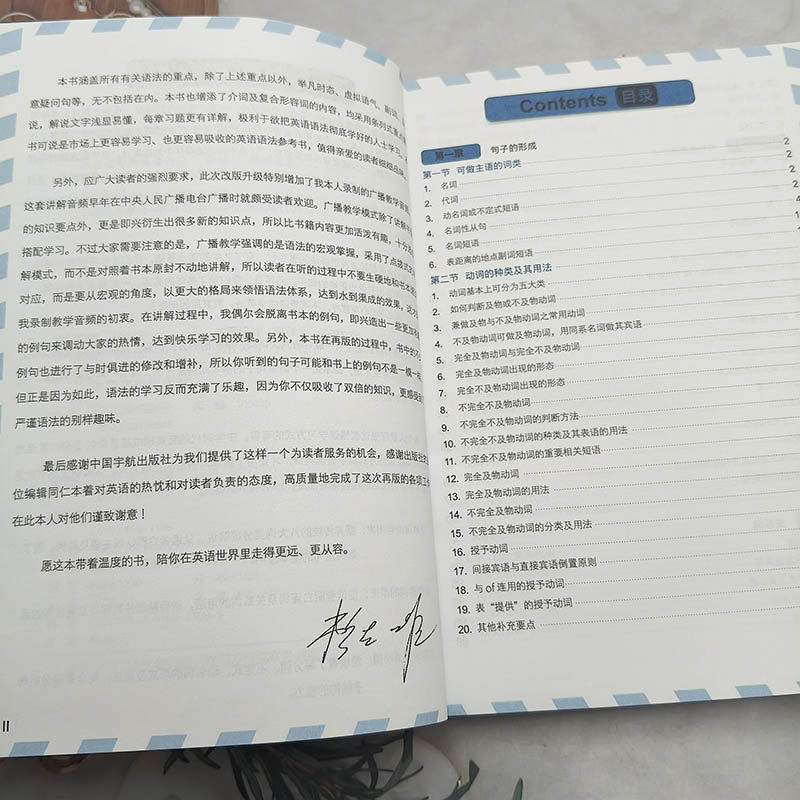 本书涵盖所有有关语法的重点，除了上述重点以外，举凡时态、虚拟语气、副词、
意疑问句等，无不包括在内。本书也增添了介词及复合形容词的内容，均采用条列式重点
说，解说文字浅显易懂，每章习题更有详解，极利于欲把英语语法彻底学好的人士学习。
书可说是市场上更容易学习、也更容易吸收的英语语法参考书，值得亲爱的读者细细品
另外，应广大读者的强烈要求，此次改版升级特别增加了我本人录制的广播教学音
这套讲解音频早年在中央人民广播电台广播时就颇受读者欢迎。广播教学模式除了讲解书
的知识要点外，更是即兴衍生出很多新的知识点，所以比书籍内容更加活泼有趣，十分
搭配学习。不过大家需要注意的是，广播教学强调的是语法的宏观掌握，采用了点拨式
解模式，而不是对照着书本原封不动地讲解，所以读者在听的过程中不要生硬地和书本
对应，而是要从宏观的角度，以更大的格局来领悟语法体系，达到水到渠成的效果，这
我录制教学音频的初衷。在讲解过程中，我偶尔会脱离书本的例句，即兴造出一些更加
的例句来调动大家的热情，达到快乐学习的效果。另外，本书在再版的过程中，书中的
例句也进行了与时俱进的修改和增补，所以你听到的句子可能和书上的例句不是一模一样
但正是因为如此，语法的学习反而充满了乐趣，因为你不仅吸收了双倍的知识，更感受
严谨语法的别样趣味。
最后感谢中国宇航出版社为我们提供了这样一个为读者服务的机会，感谢出版社的
位编辑同仁本着对英语的热忱和对读者负责的态度，高质量地完成了这次再版的各项工
在此本人对他们谨致谢意！
愿这本带着温度的书，陪你在英语世界里走得更远、更从容。
II
Contents 目录
第一章 句子的形成 2
第一节 可做主语的词类 2
1. 名词 2
2. 代词 2
3. 动名词或不定式短语
4. 名词性从句
5. 名词短语
6. 表距离的地点副词短语
第二节 动词的种类及其用法
1. 动词基本上可分为五大类
2. 如何判断及物或不及物动词
3. 兼做及物与不及物动词之常用动词
4. 不及物动词可做及物动词，用同系名词做其宾语
5. 完全及物动词与完全不及物动词
6. 完全及物动词出现的形态
7. 完全不及物动词出现的形态
8. 不完全不及物动词
9. 不完全不及物动词的判断方法
10. 不完全不及物动词的种类及其表语的用法
11. 不完全不及物动词的重要相关短语
12. 完全及物动词
13. 完全及物动词的用法
14. 不完全及物动词
15. 不完全及物动词的分类及用法
16. 授予动词
17. 间接宾语与直接宾语倒置原则
18. 与 of 连用的授予动词
19. 表“提供”的授予动词
20. 其他补充要点